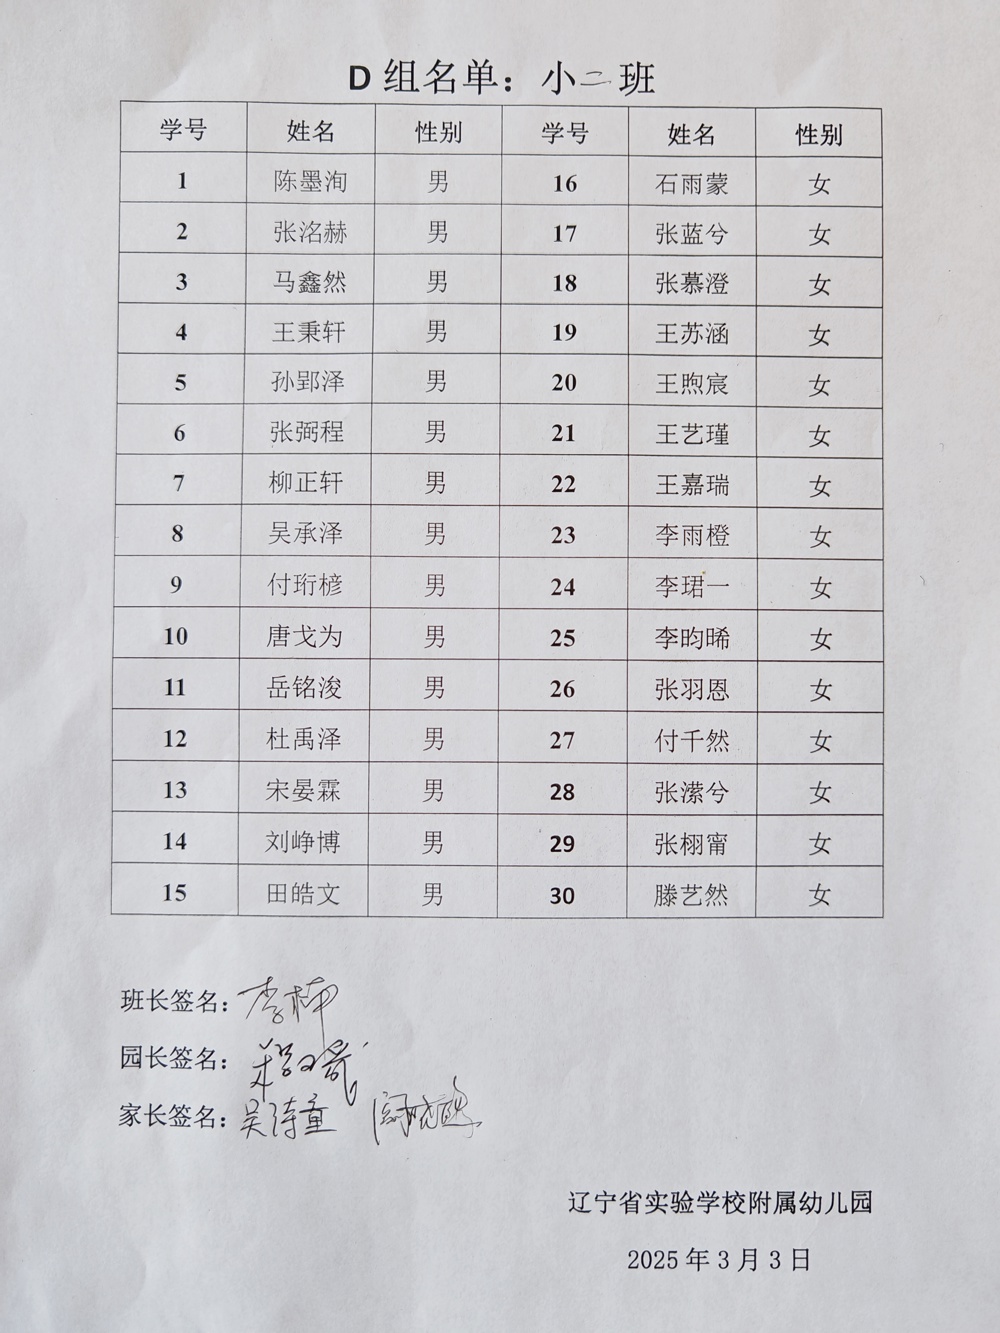 D 组名单：小二班
学号 姓名 性别 学号 姓名 性别
1 陈墨洵 男 16 石雨蒙 女
2 张洺赫 男 17 张蓝兮 女
3 马鑫然 男 18 张慕澄 女
4 王秉轩 男 19 王苏涵 女
5 孙郢泽 男 20 王煦宸 女
6 张弼程 男 21 王艺瑾 女
7 柳正轩 男 22 王嘉瑞 女
8 吴承泽 男 23 李雨橙 女
9 付珩楌 男 24 李珺一 女
10 唐戈为 男 25 李昀晞 女
11 岳铭浚 男 26 张羽恩 女
12 杜禹泽 男 27 付千然 女
13 宋晏霖 男 28 张潆兮 女
14 刘峥博 男 29 张栩甯 女
15 田皓文 男 30 滕艺然 女
班长签名：李楠
园长签名：
家长签名：吴诗童
辽宁省实验学校附属幼儿园
2025 年 3 月 3 日